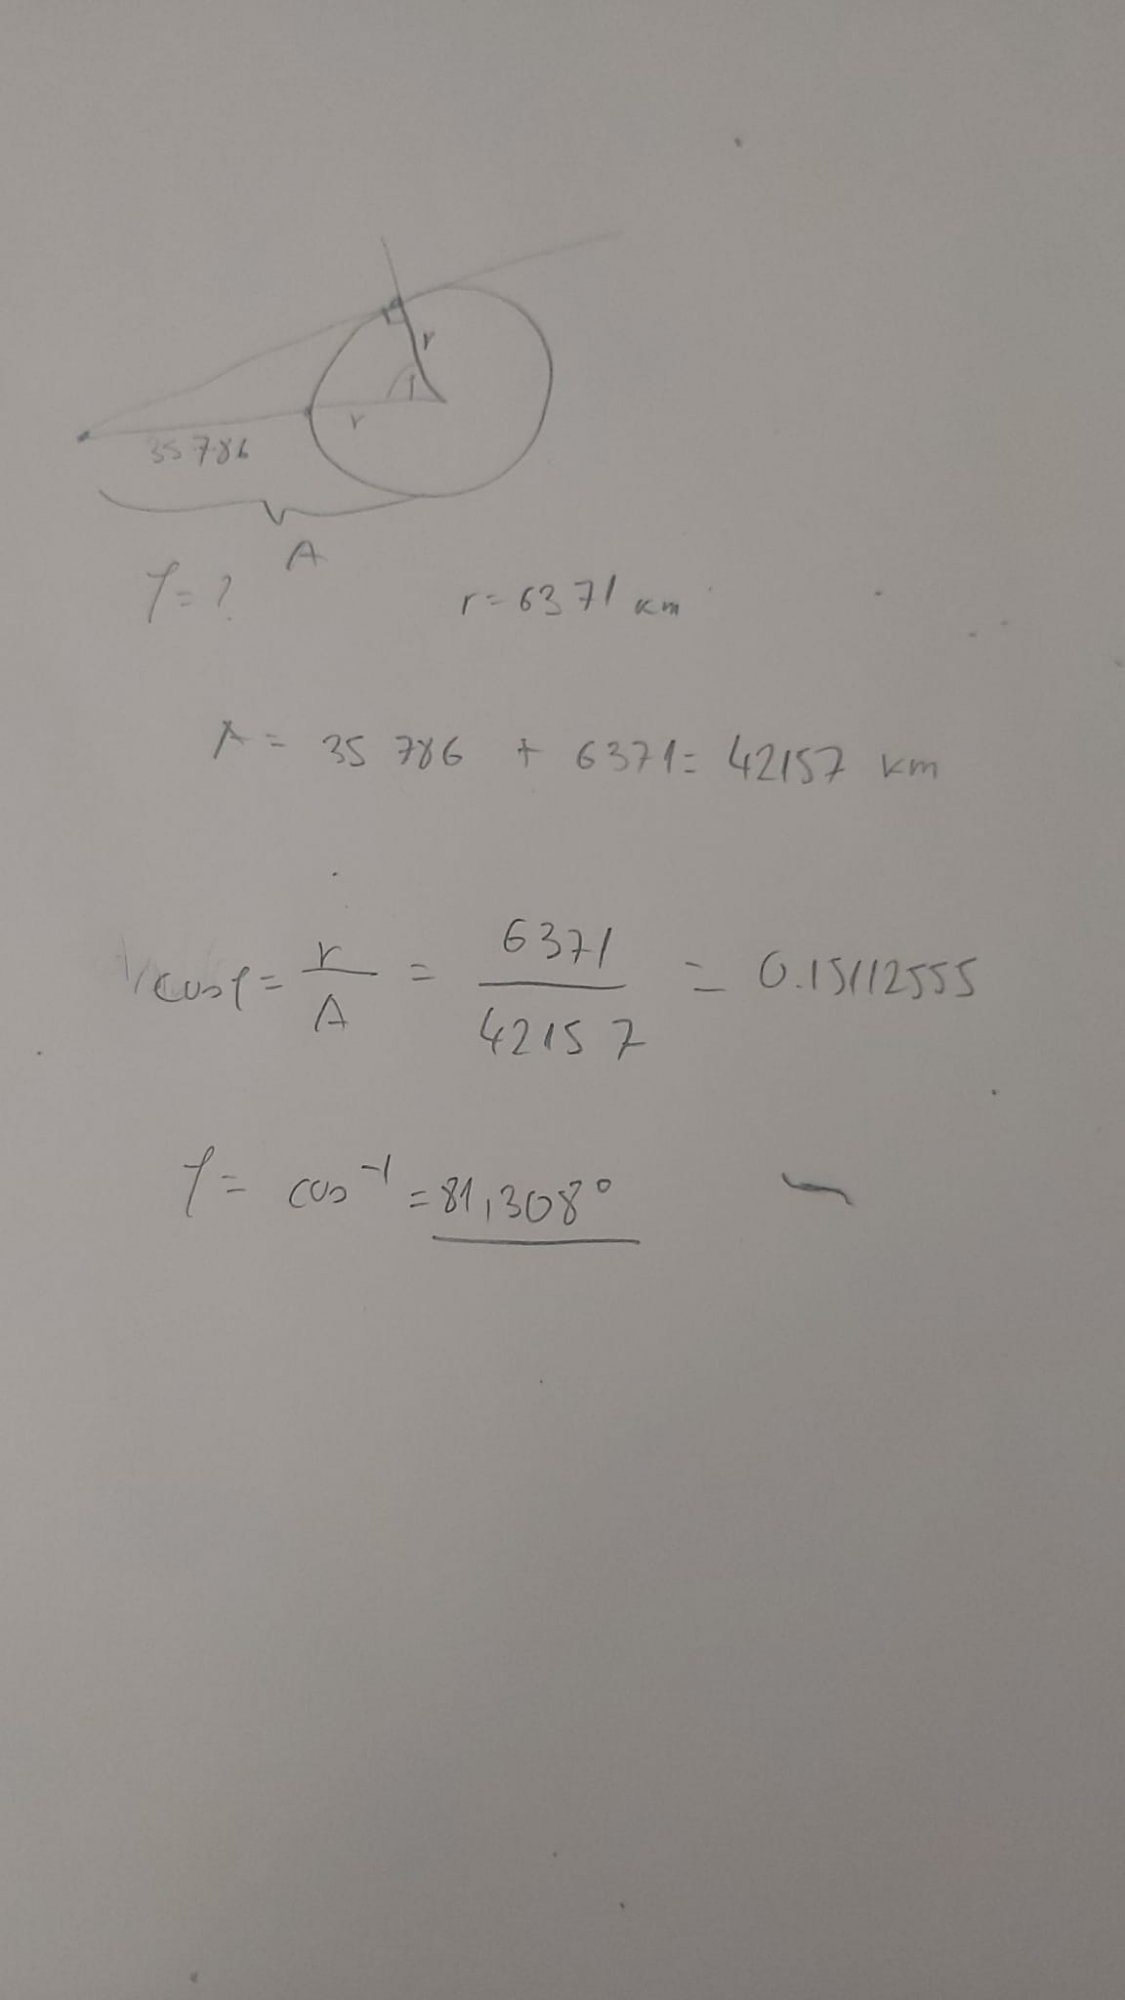 r
r
35786
A
φ=?
r=6371 km
A= 35 786 + 6371= 42157 km
cosφ= r/A = 6371/42157 = 0.15112555
φ= cos⁻¹ =81,308°